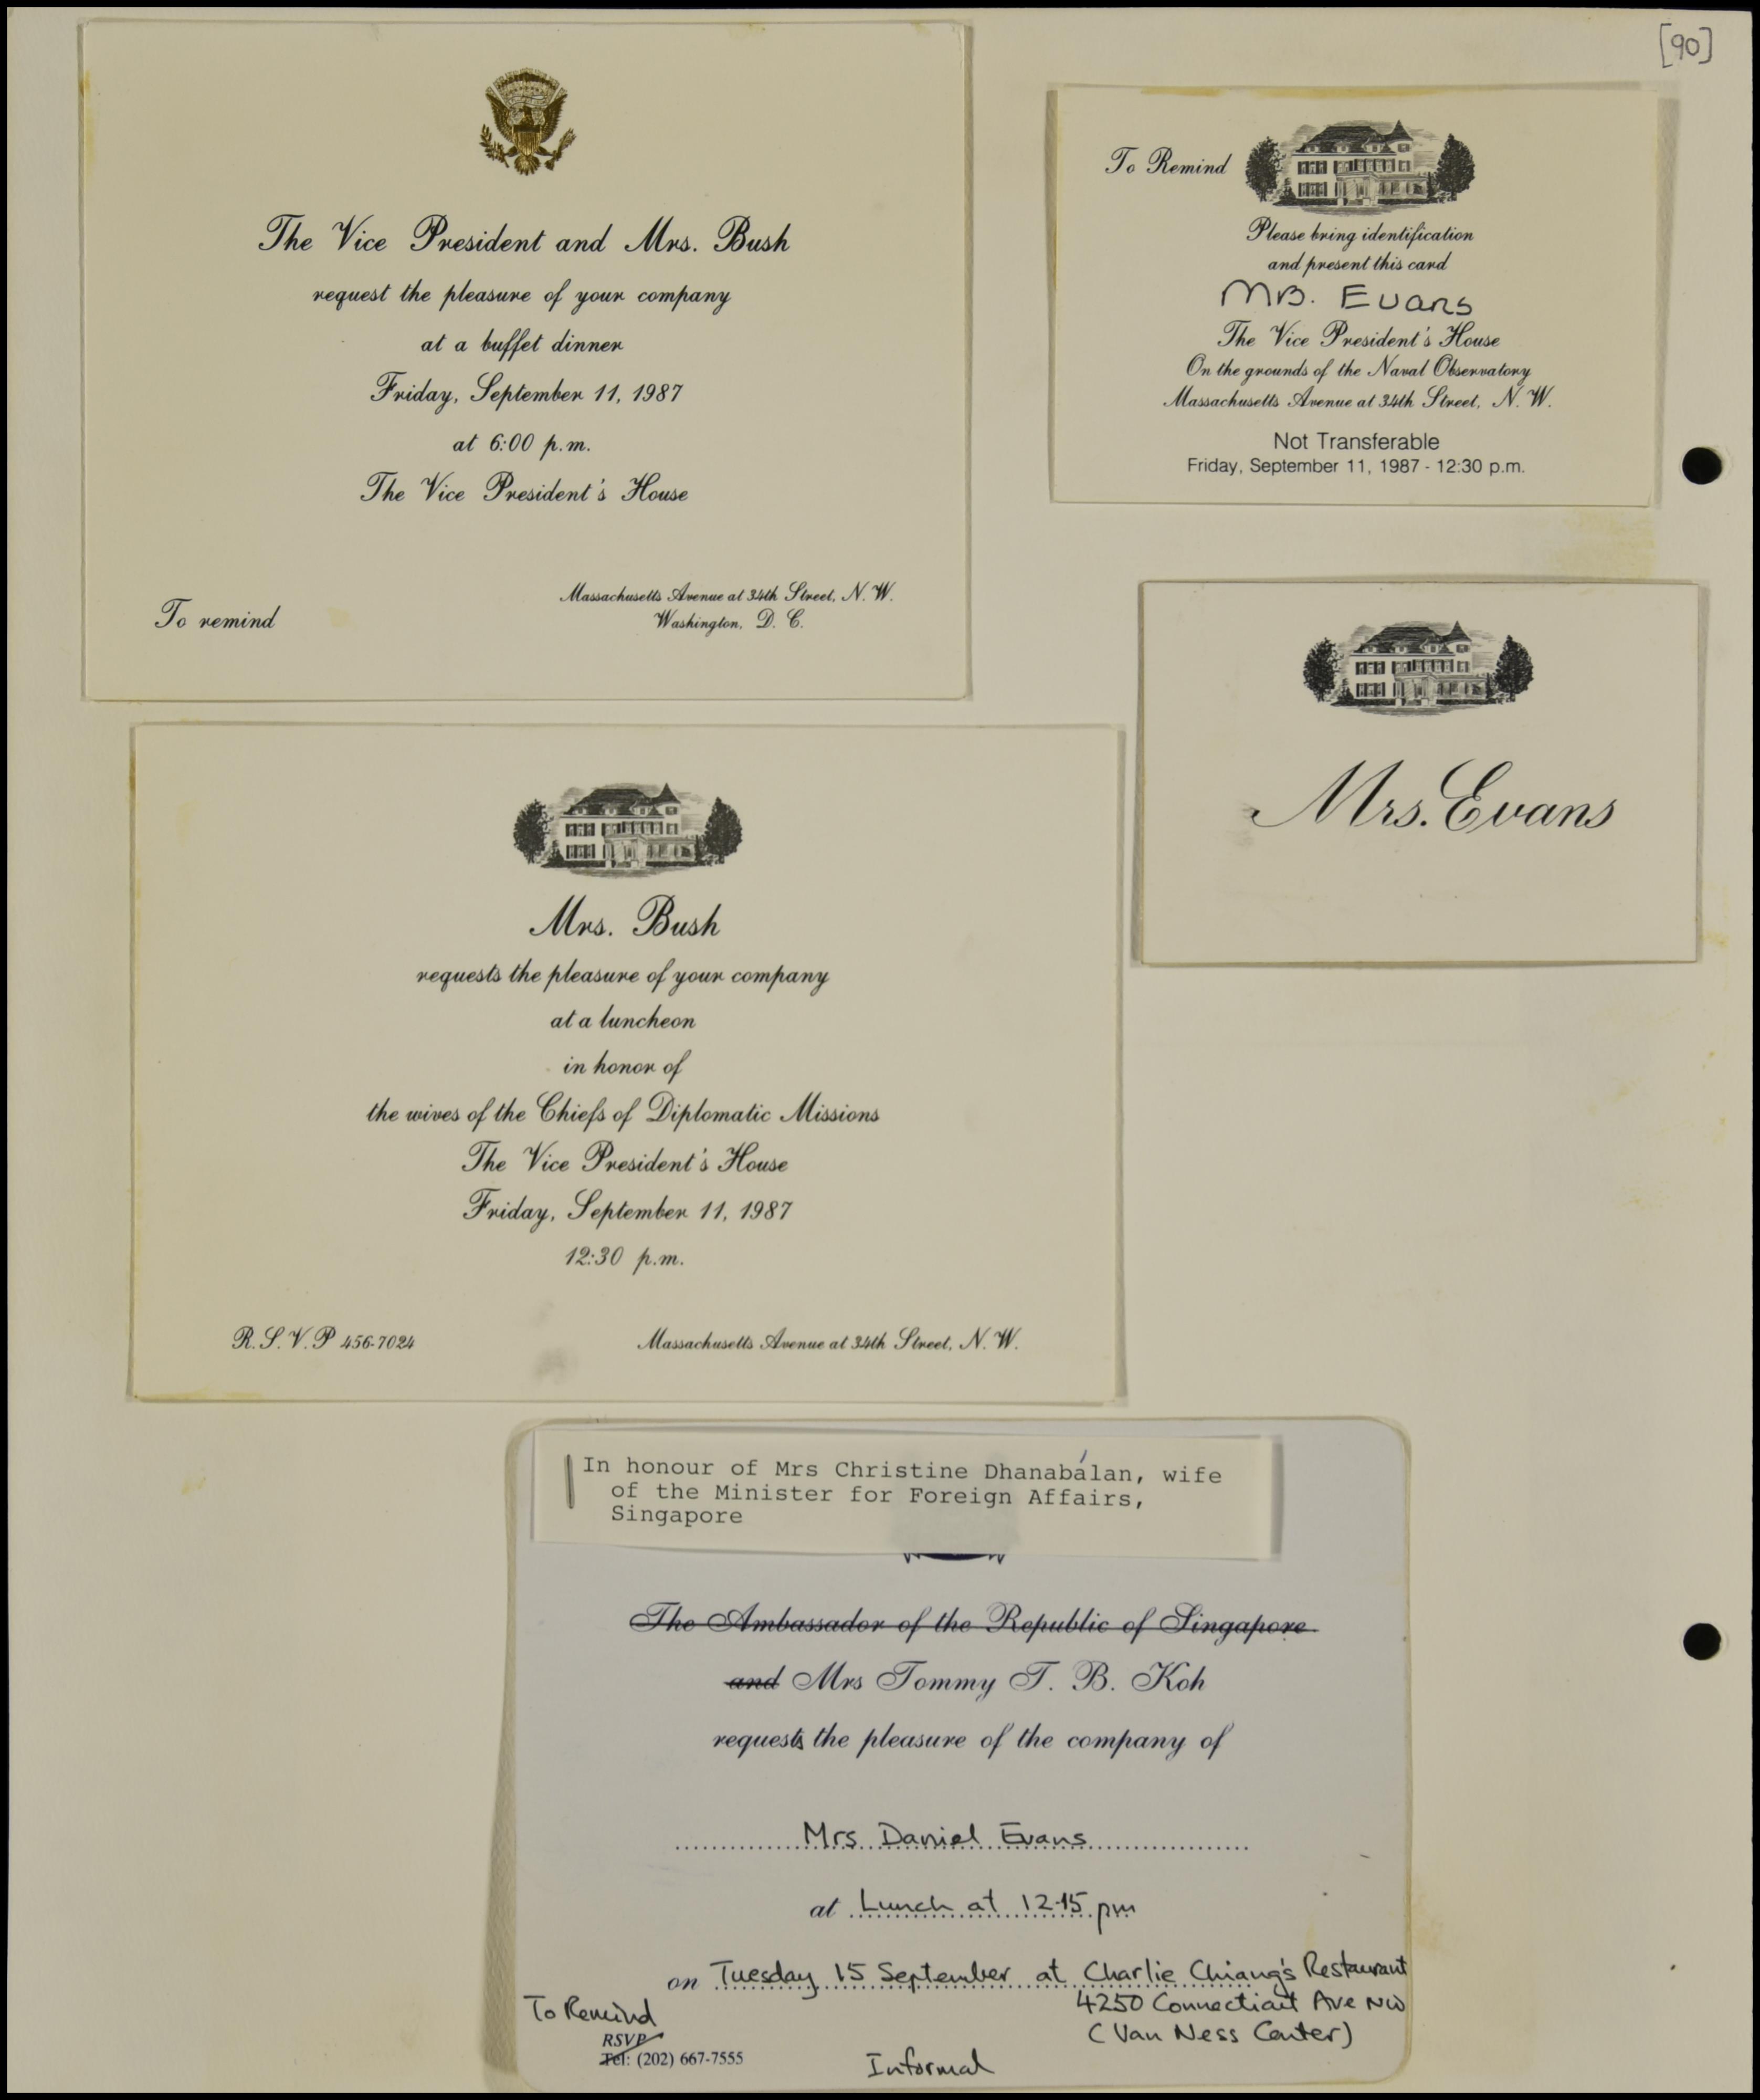 [90]
The Vice President and Mrs. Bush
request the pleasure of your company
at a buffet dinner
Friday, September 11, 1987
at 6:00 p.m.
The Vice President's House
Massachusetts Avenue at 34th Street, N. W.
Washington, D. C.
To remind
To Remind
Please bring identification
and present this card
Mrs. Evans
The Vice President's House
On the grounds of the Naval Observatory
Massachusetts Avenue at 34th Street, N. W.
Not Transferable
Friday, September 11, 1987 - 12:30 p.m.
Mrs. Evans
Mrs. Bush
requests the pleasure of your company
at a luncheon
in honor of
the wives of the Chiefs of Diplomatic Missions
The Vice President's House
Friday, September 11, 1987
12:30 p.m.
R. S. V. P 456-7024
Massachusetts Avenue at 34th Street, N. W.
In honour of Mrs Christine Dhanabálan, wife
of the Minister for Foreign Affairs,
Singapore
The Ambassador of the Republic of Singapore
and Mrs Tommy T. B. Koh
requests the pleasure of the company of
Mrs Daniel Evans
at Lunch at 12.15 pm
on Tuesday 15 September at Charlie Chiang's Restaurant
4250 Connecticut Ave NW
(Van Ness Center)
To Remind
RSVP
Tel: (202) 667-7555
Informal